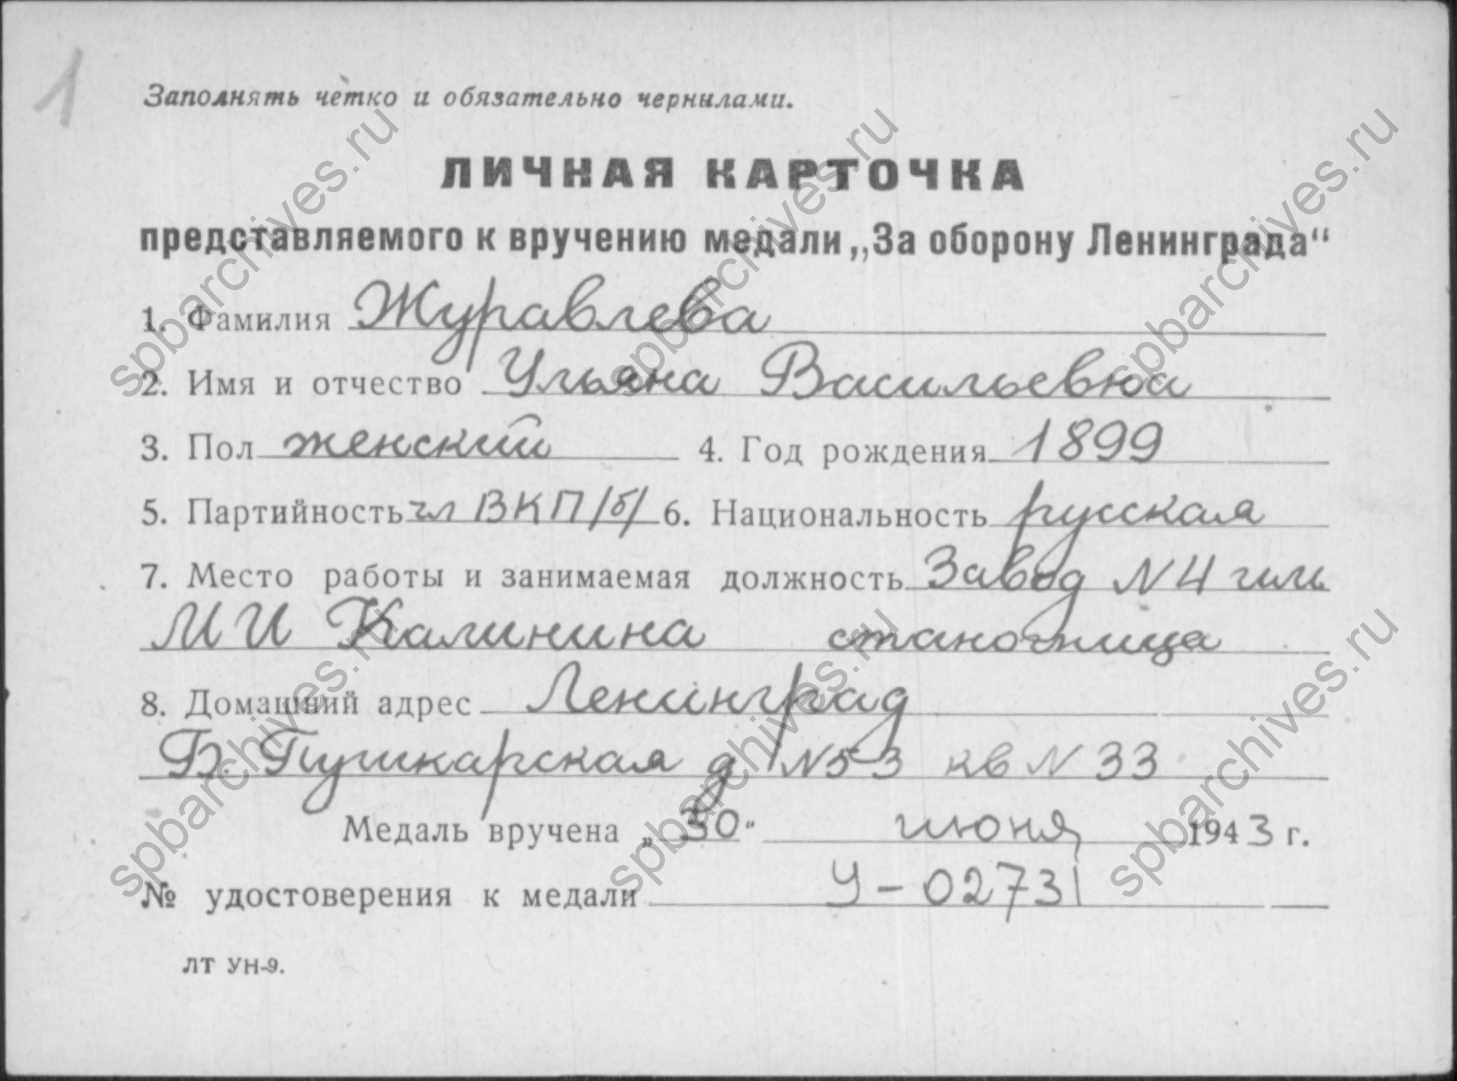 1
Заполнять четко и обязательно чернилами.
ЛИЧНАЯ КАРТОЧКА
представляемого к вручению медали „За оборону Ленинграда“
1. Фамилия Журавлева
2. Имя и отчество Ульяна Васильевна
3. Пол женский 4. Год рождения 1899
5. Партийность чл ВКП/б/ 6. Национальность русская
7. Место работы и занимаемая должность Завод N4 им.
МИ Калинина станочница
8. Домашний адрес Ленинград
Б. Пушкарская д N53 кв N 33
Медаль вручена „30“ июня 1943 г.
№ удостоверения к медали У-02731
ЛТ УН-9.
spbarchives.ru
spbarchives.ru
spbarchives.ru
spbarchives.ru
spbarchives.ru
spbarchives.ru